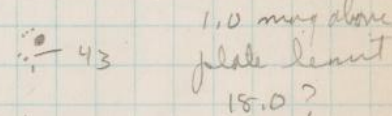 43
1.0 mag above
plate limit
18.0?